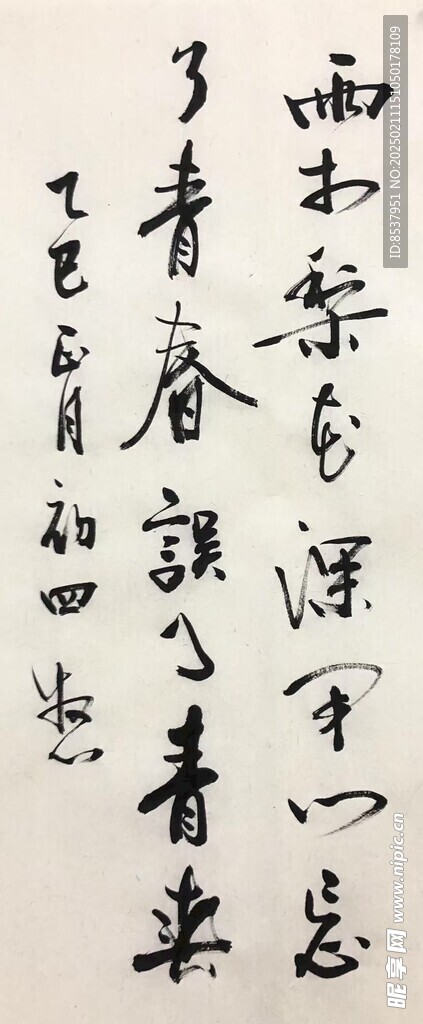 雨打梨花深闭门忘
了青春誤了青春
乙巳正月初四
ID:8537951 NO:20250211151050178109
昵享网 www.nipic.cn